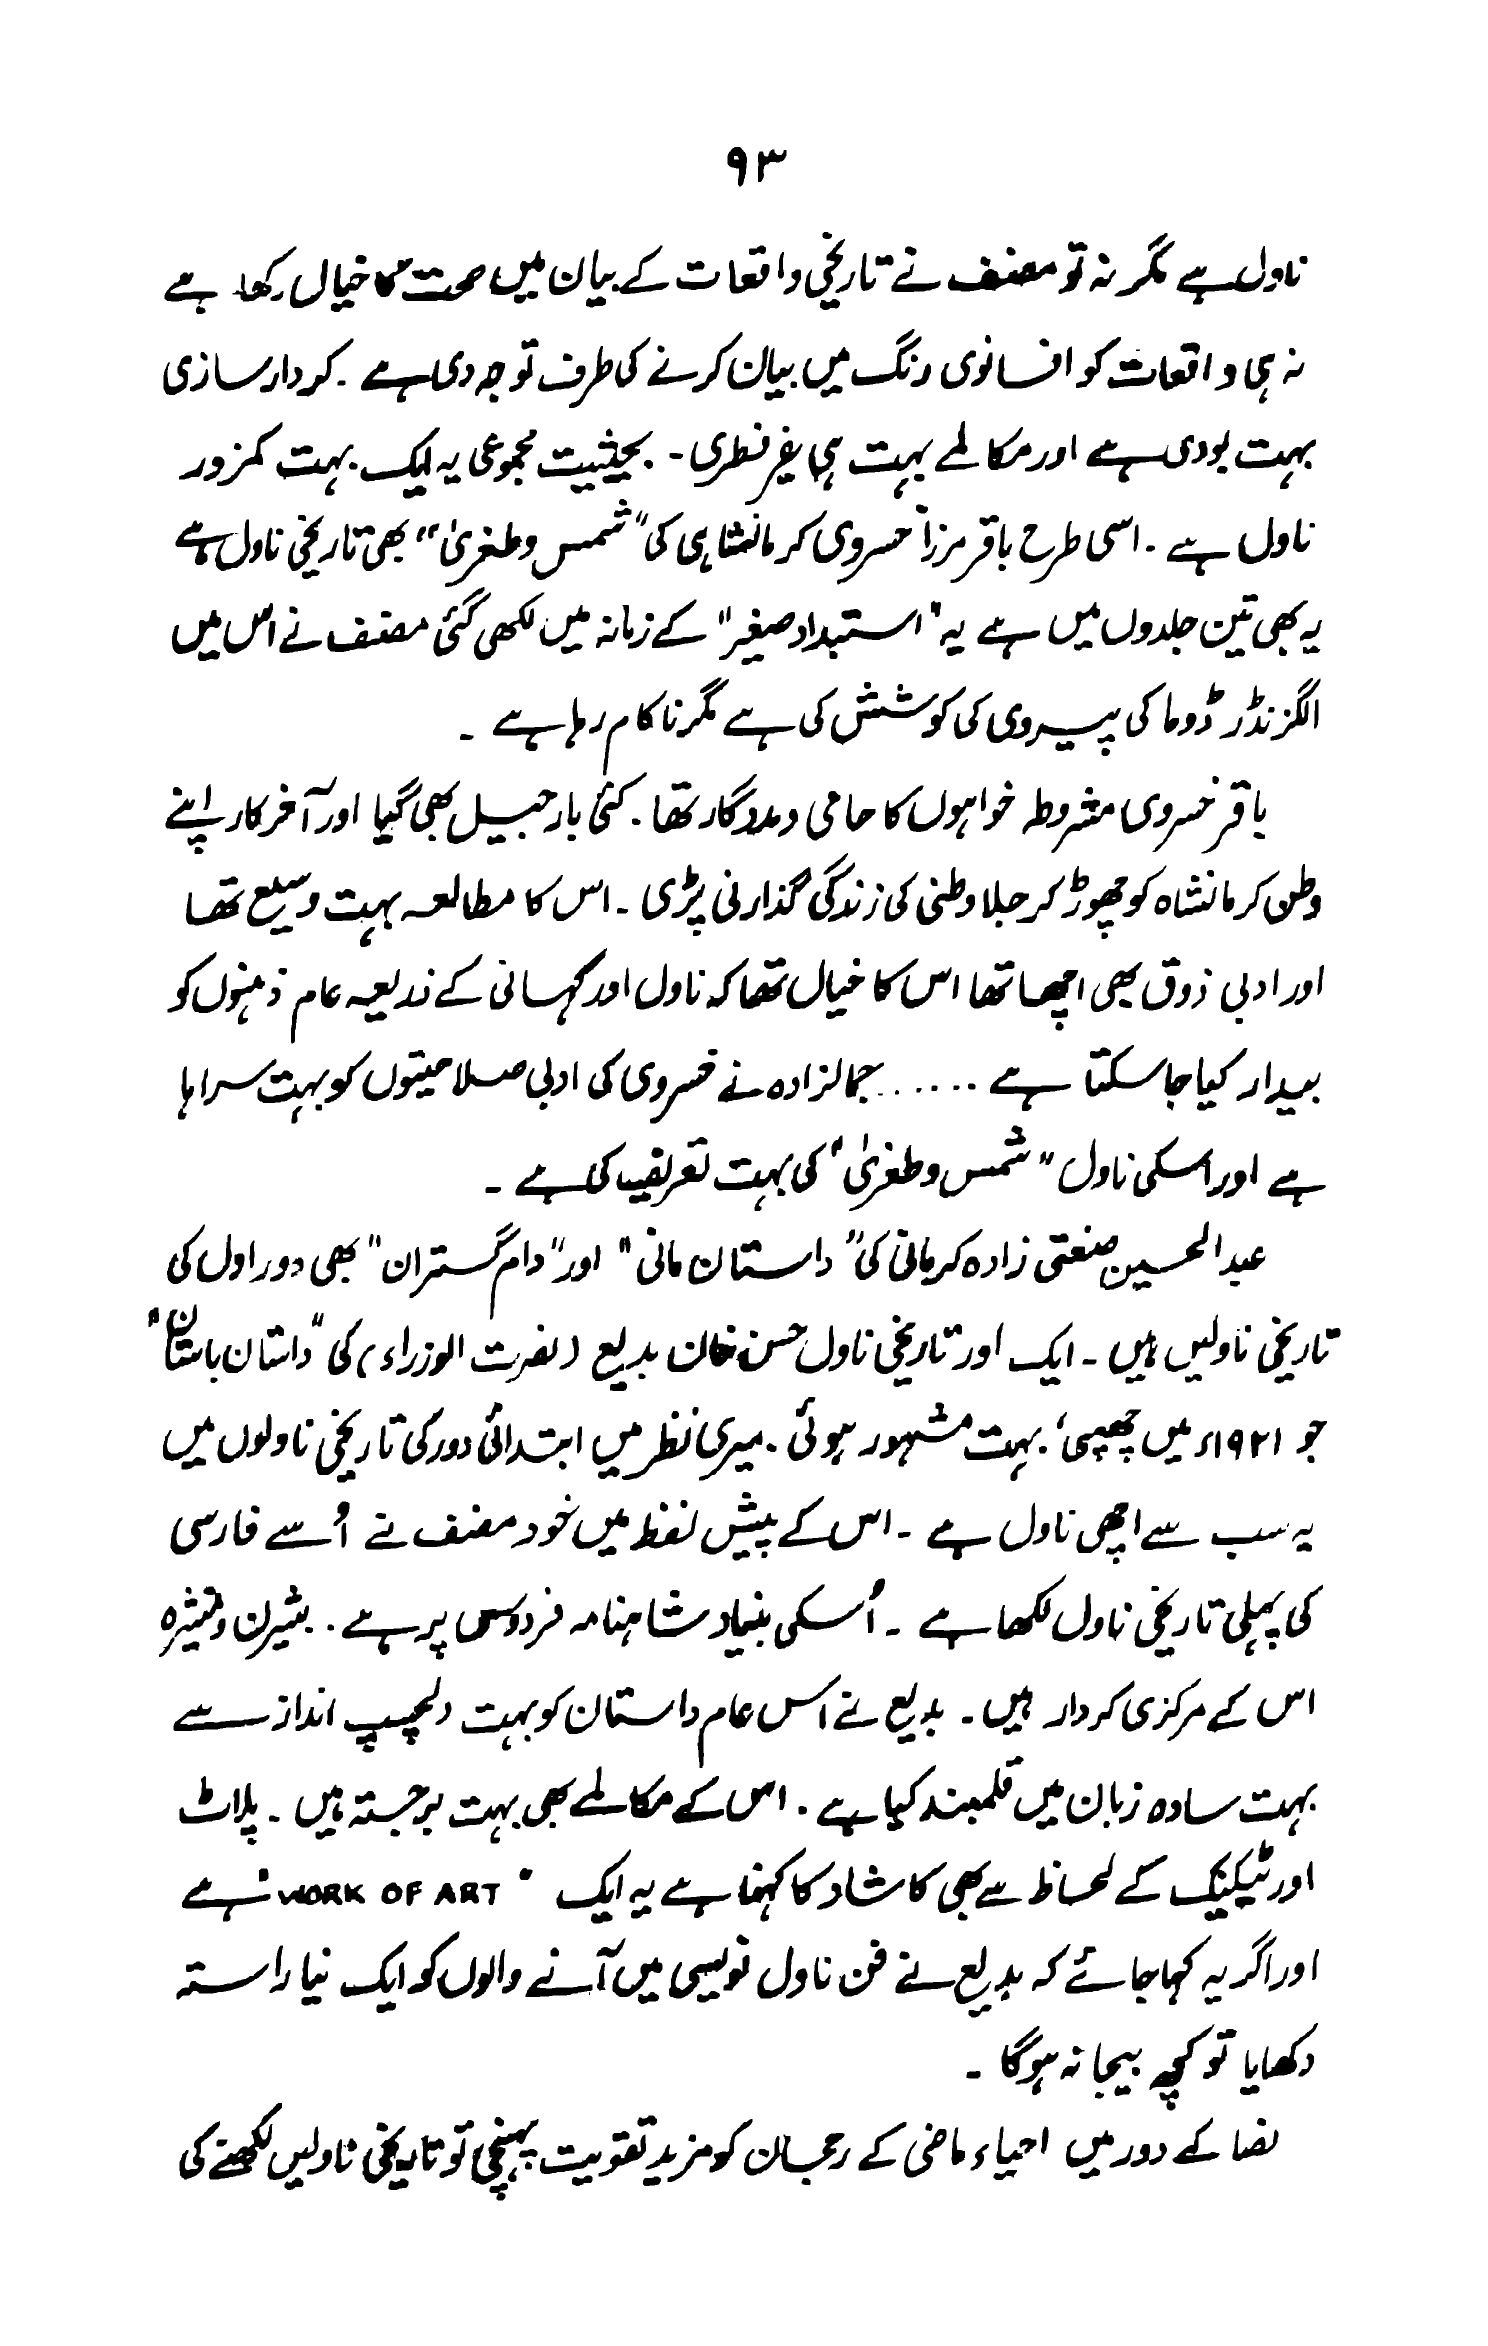 ۹۳
ناول ہے مگر نہ تو مصنف نے تاریخی واقعات کے بیان میں صحت کا خیال رکھا ہے
نہ ہی واقعات کو افسانوی رنگ میں بیان کرنے کی طرف توجہ دی ہے ۔ کردار سازی
بہت بودی ہے اور مکالمے بہت ہی غیر فطری ۔ بحیثیت مجموعی یہ ایک بہت کمزور
ناول ہے ۔ اسی طرح باقر مرزا خسروی کرمانشاہی کی "شمس و طغریٰ" بھی تاریخی ناول ہے
یہ بھی تین جلدوں میں ہے یہ "استبداد صغیر" کے زمانہ میں لکھی گئی مصنف نے اس میں
الگزنڈر ڈوما کی پیروی کی کوشش کی ہے مگر ناکام رہا ہے ۔
باقر خسروی مشروطہ خواہوں کا حامی و مددگار تھا ۔ کئی بار جیل بھی گیا اور آخر کار اپنے
وطن کرمانشاہ کو چھوڑ کر جلا وطنی کی زندگی گذارنی پڑی ۔ اس کا مطالعہ بہت وسیع تھا
اور ادبی ذوق بھی اچھا تھا اس کا خیال تھا کہ ناول اور کہانی کے ذریعہ عام ذہنوں کو
بیدار کیا جا سکتا ہے ...... جمالزادہ نے خسروی کی ادبی صلاحیتوں کو بہت سراہا
ہے اور اسکی ناول "شمس و طغریٰ" کی بہت تعریف کی ہے ۔
عبدالحسین صنعتی زادہ کرمانی کی "داستان مانی" اور "دام گستران" بھی دور اول کی
تاریخی ناولیں ہیں ۔ ایک اور تاریخی ناول حسن خان بدیع (نصرت الوزراء) کی "داستان باستان"
جو ۱۹۲۱ء میں چھپی، بہت مشہور ہوئی ۔ میری نظر میں ابتدائی دور کی تاریخی ناولوں میں
یہ سب سے اچھی ناول ہے ۔ اس کے پیش لفظ میں خود مصنف نے اُسے فارسی
کی پہلی تاریخی ناول لکھا ہے ۔ اُسکی بنیاد شاہنامہ فردوسی پر ہے ۔ بیژن و منیژہ
اس کے مرکزی کردار ہیں ۔ بدیع نے اس عام داستان کو بہت دلچسپ انداز سے
بہت سادہ زبان میں قلمبند کیا ہے ۔ اس کے مکالمے بھی بہت برجستہ ہیں ۔ پلاٹ
اور ٹیکنیک کے لحاظ سے بھی کاشاد کا کہنا ہے یہ ایک "WORK OF ART" ہے
اور اگر یہ کہا جائے کہ بدیع نے فن ناول نویسی میں آنے والوں کو ایک نیا راستہ
دکھایا تو کچھ بیجا نہ ہوگا ۔
رضا کے دور میں احیاء ماضی کے رجحان کو مزید تقویت پہنچی تو تاریخی ناولیں لکھنے کی